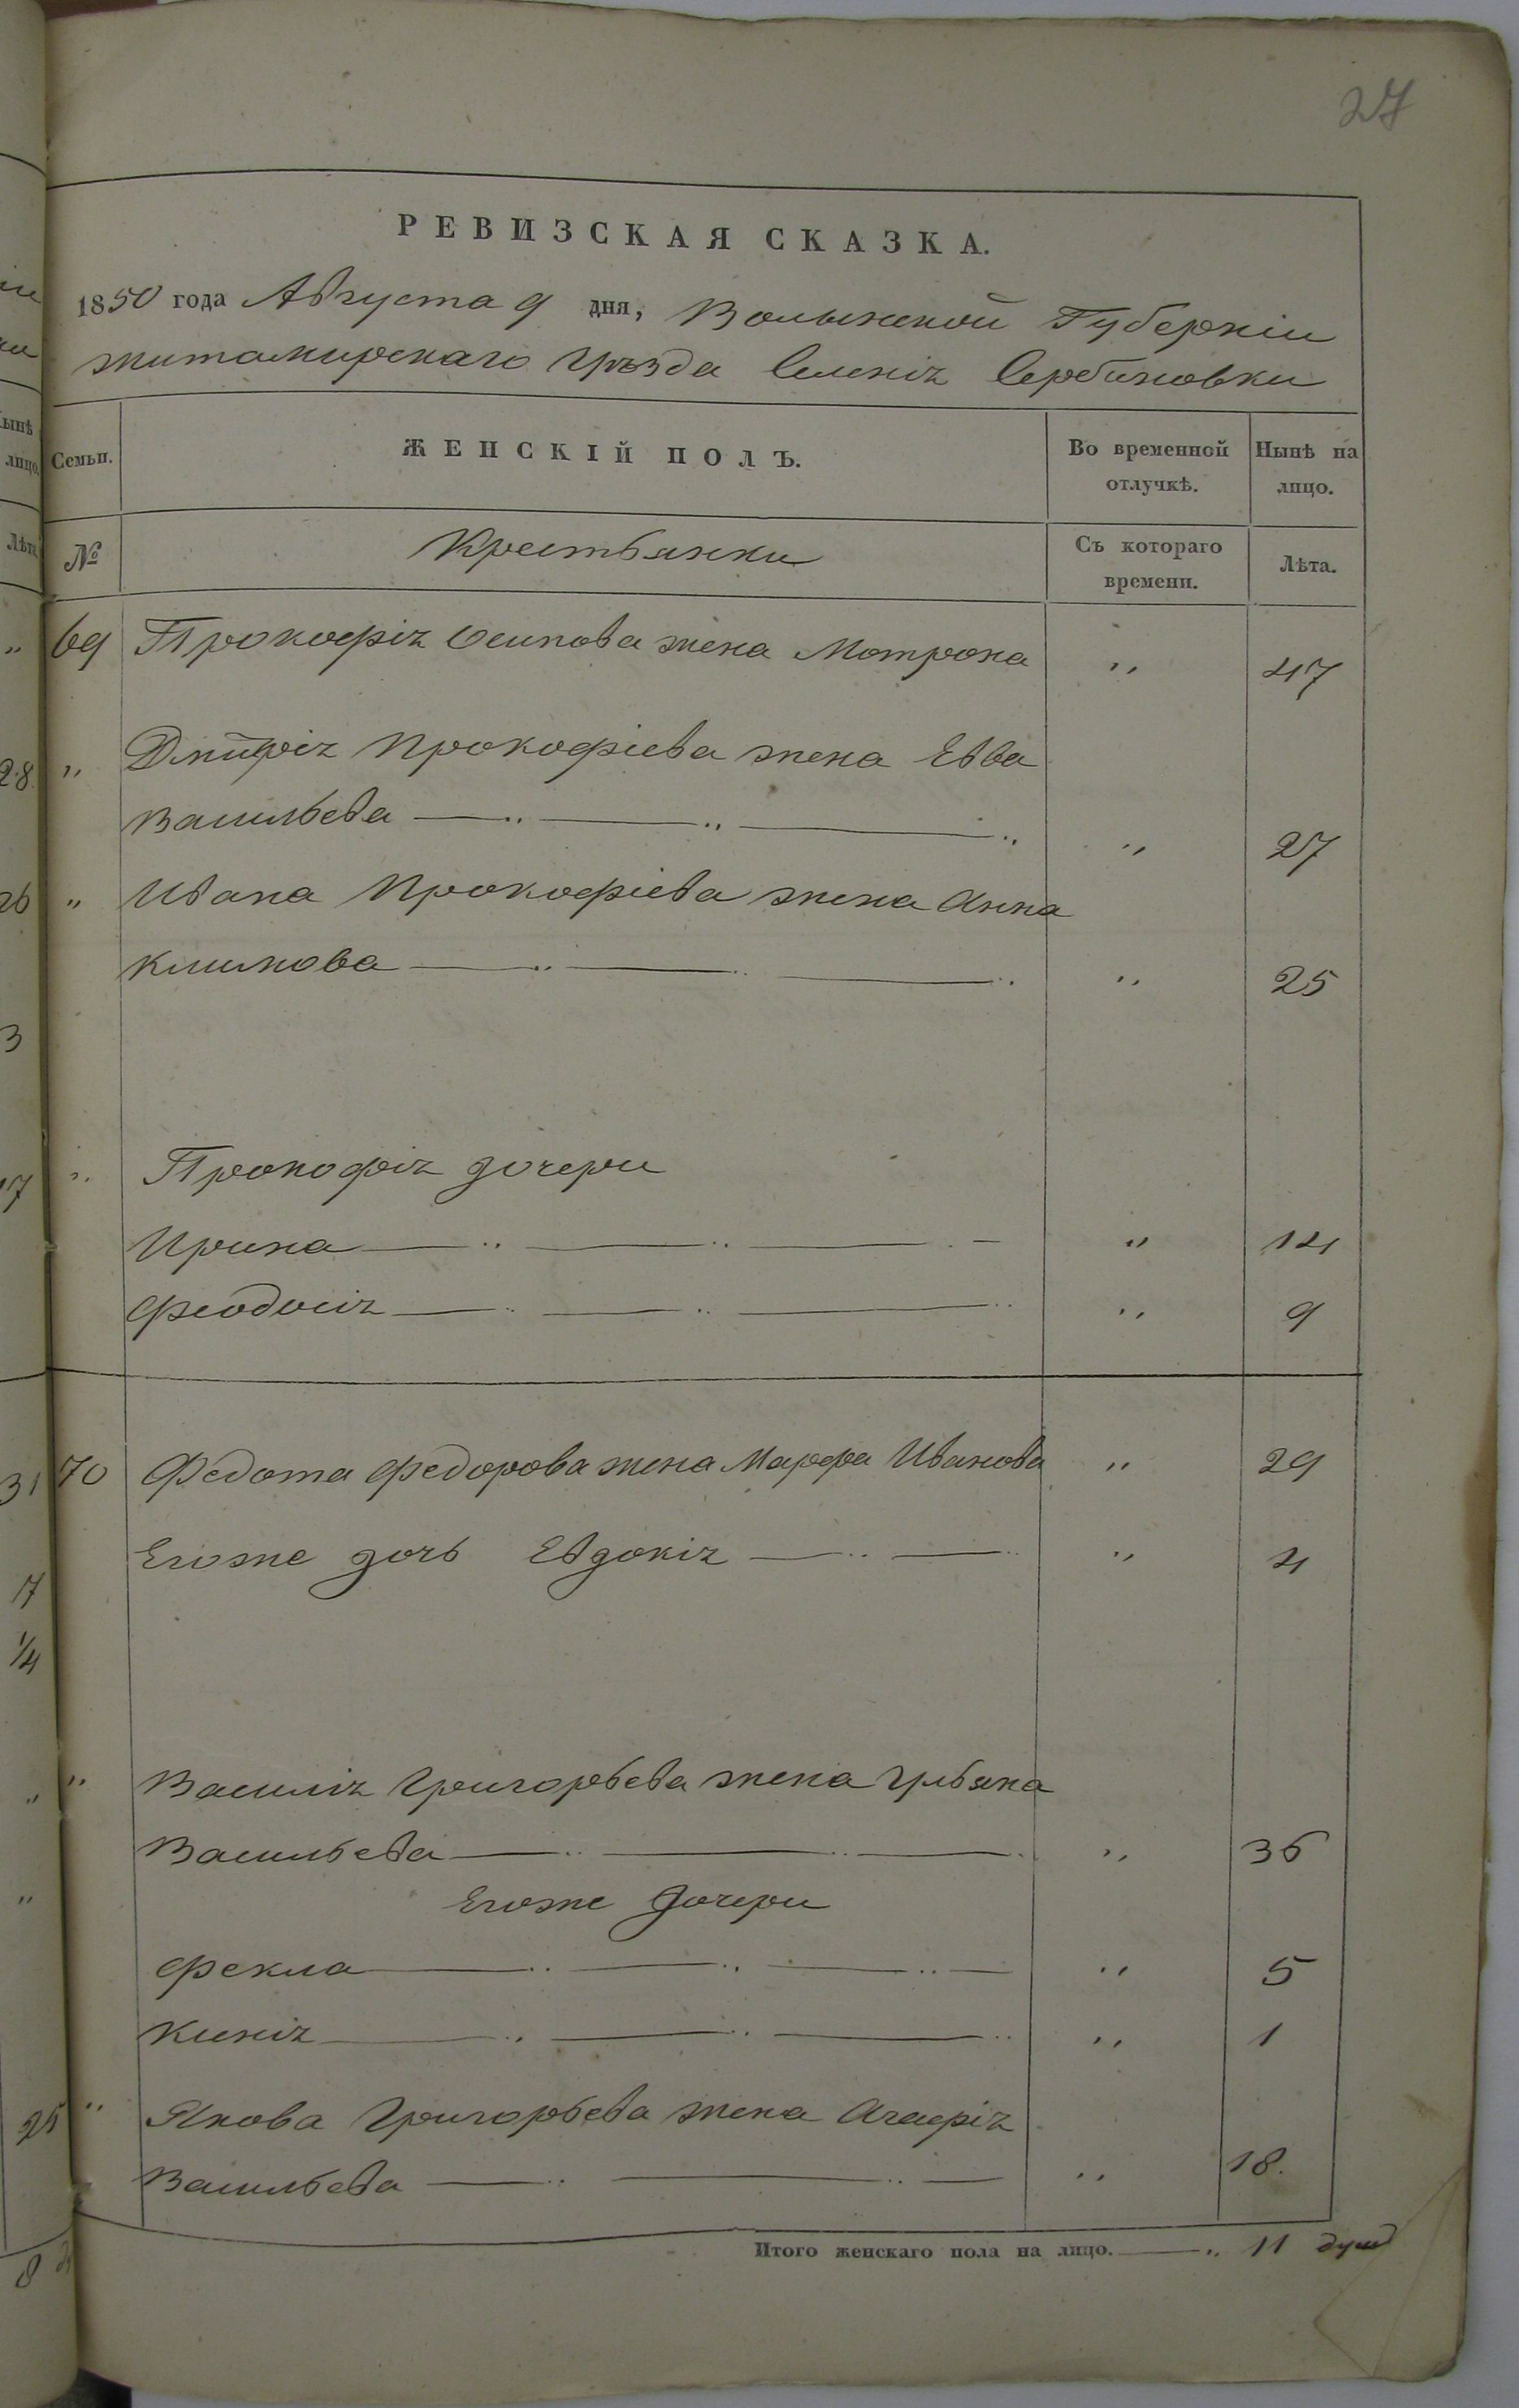 27
РЕВИЗСКАЯ СКАЗКА.
1850 года Августа 9 дня, Волынской Губерніи
Житомирскаго Уѣзда Селенія Сербиновки
Семьи. ЖЕНСКІЙ ПОЛЪ. Во временной отлучкѣ. Нынѣ на лицо.
№ Крестьянки Съ котораго времени. Лѣта.
69 Прокофія Осипова жена Мотрона " 47
" Дмитрія Прокофіева жена Евва
Васильева " 27
" Ивана Прокофіева жена Анна
Климова " 25
" Прокофія дочери
Ирина " 14
Феодосія " 9
70 Федота Федорова жена Марфа Иванова " 29
Егоже дочь Евдокія " 4
" Василія Григорьева жена Ульяна
Васильева " 36
Егоже дочери
Фекла " 5
Ксенія " 1
" Якова Григорьева жена Агафія
Васильева " 18.
Итого женскаго пола на лицо. " 11 душ